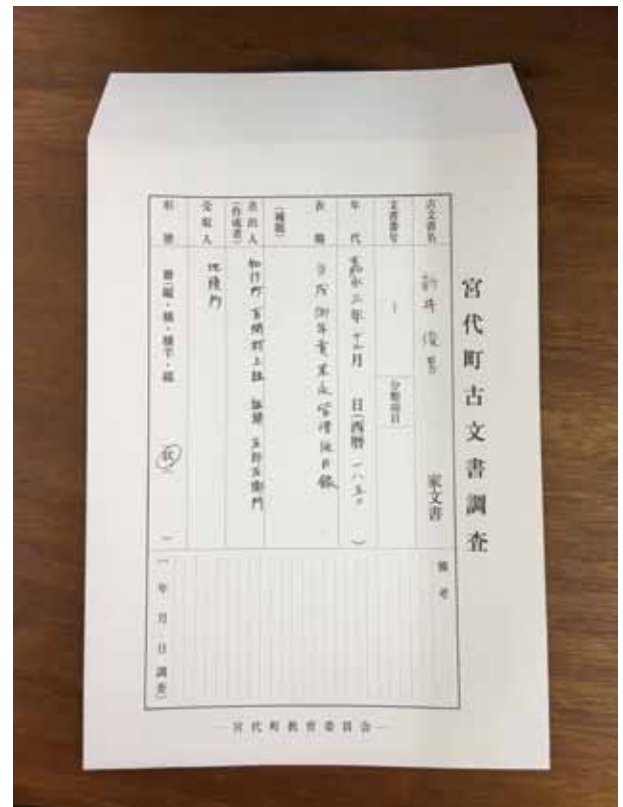 宮代町古文書調査
古文書名 新井 俊 家文書
文書番号 一 分類項目
年代 嘉永三年十二月 日(西暦一八五〇)
表題 御年貢米永皆済仕目録
(補題)
差出人(作成者) 知行所 百間村上組 組頭 五郎右衛門
受取人 地頭所
形態 冊(縦・横・横半・綴 状)( )
備考
( 年 月 日 調査)
宮代町教育委員会